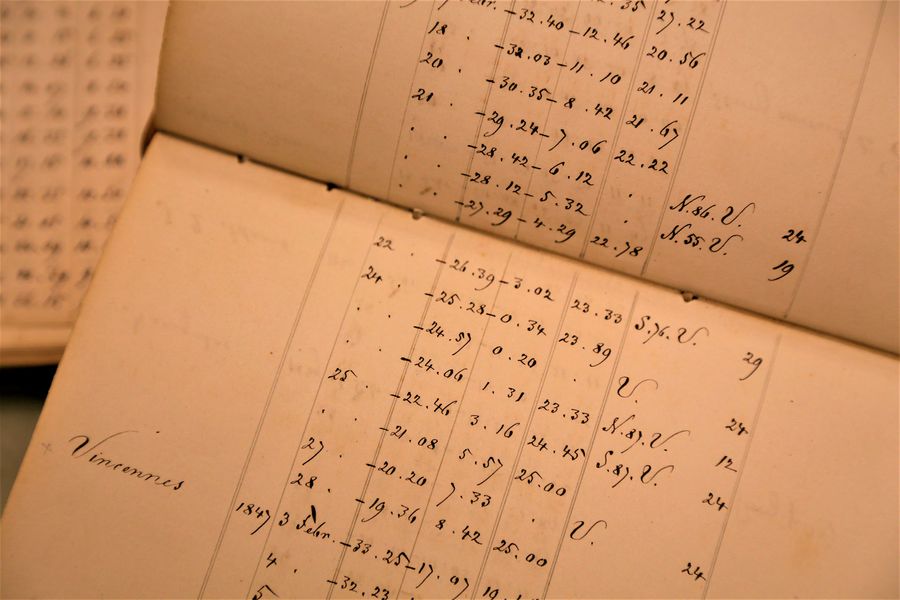 35 27.22
Febr. -32.40 -12.46 20.56
18 . -32.03 -11.10 21.11
20 . -30.35 -8.42 21.67
21 . -29.24 -7.06 22.22
. . -28.42 -6.12 . N.86.V. 24
. . -28.12 -5.32 . N.55.V. 19
. . -27.29 -4.29 22.78
22 . -26.39 -3.02 23.33 S.76.V. 29
24 . -25.28 -0.34 23.89
. . -24.57 0.20 . V. 24
. . -24.06 1.31 23.33 N.87.V. 12
25 . -22.46 3.16 24.45 S.87.V. 24
. . -21.08 5.57 25.00
27 . -20.20 7.33 . V. 24
28 . -19.36 8.42 25.00
Vincennes
1847 3 Febr. -33.25 -17.07
4 . -32.23
5